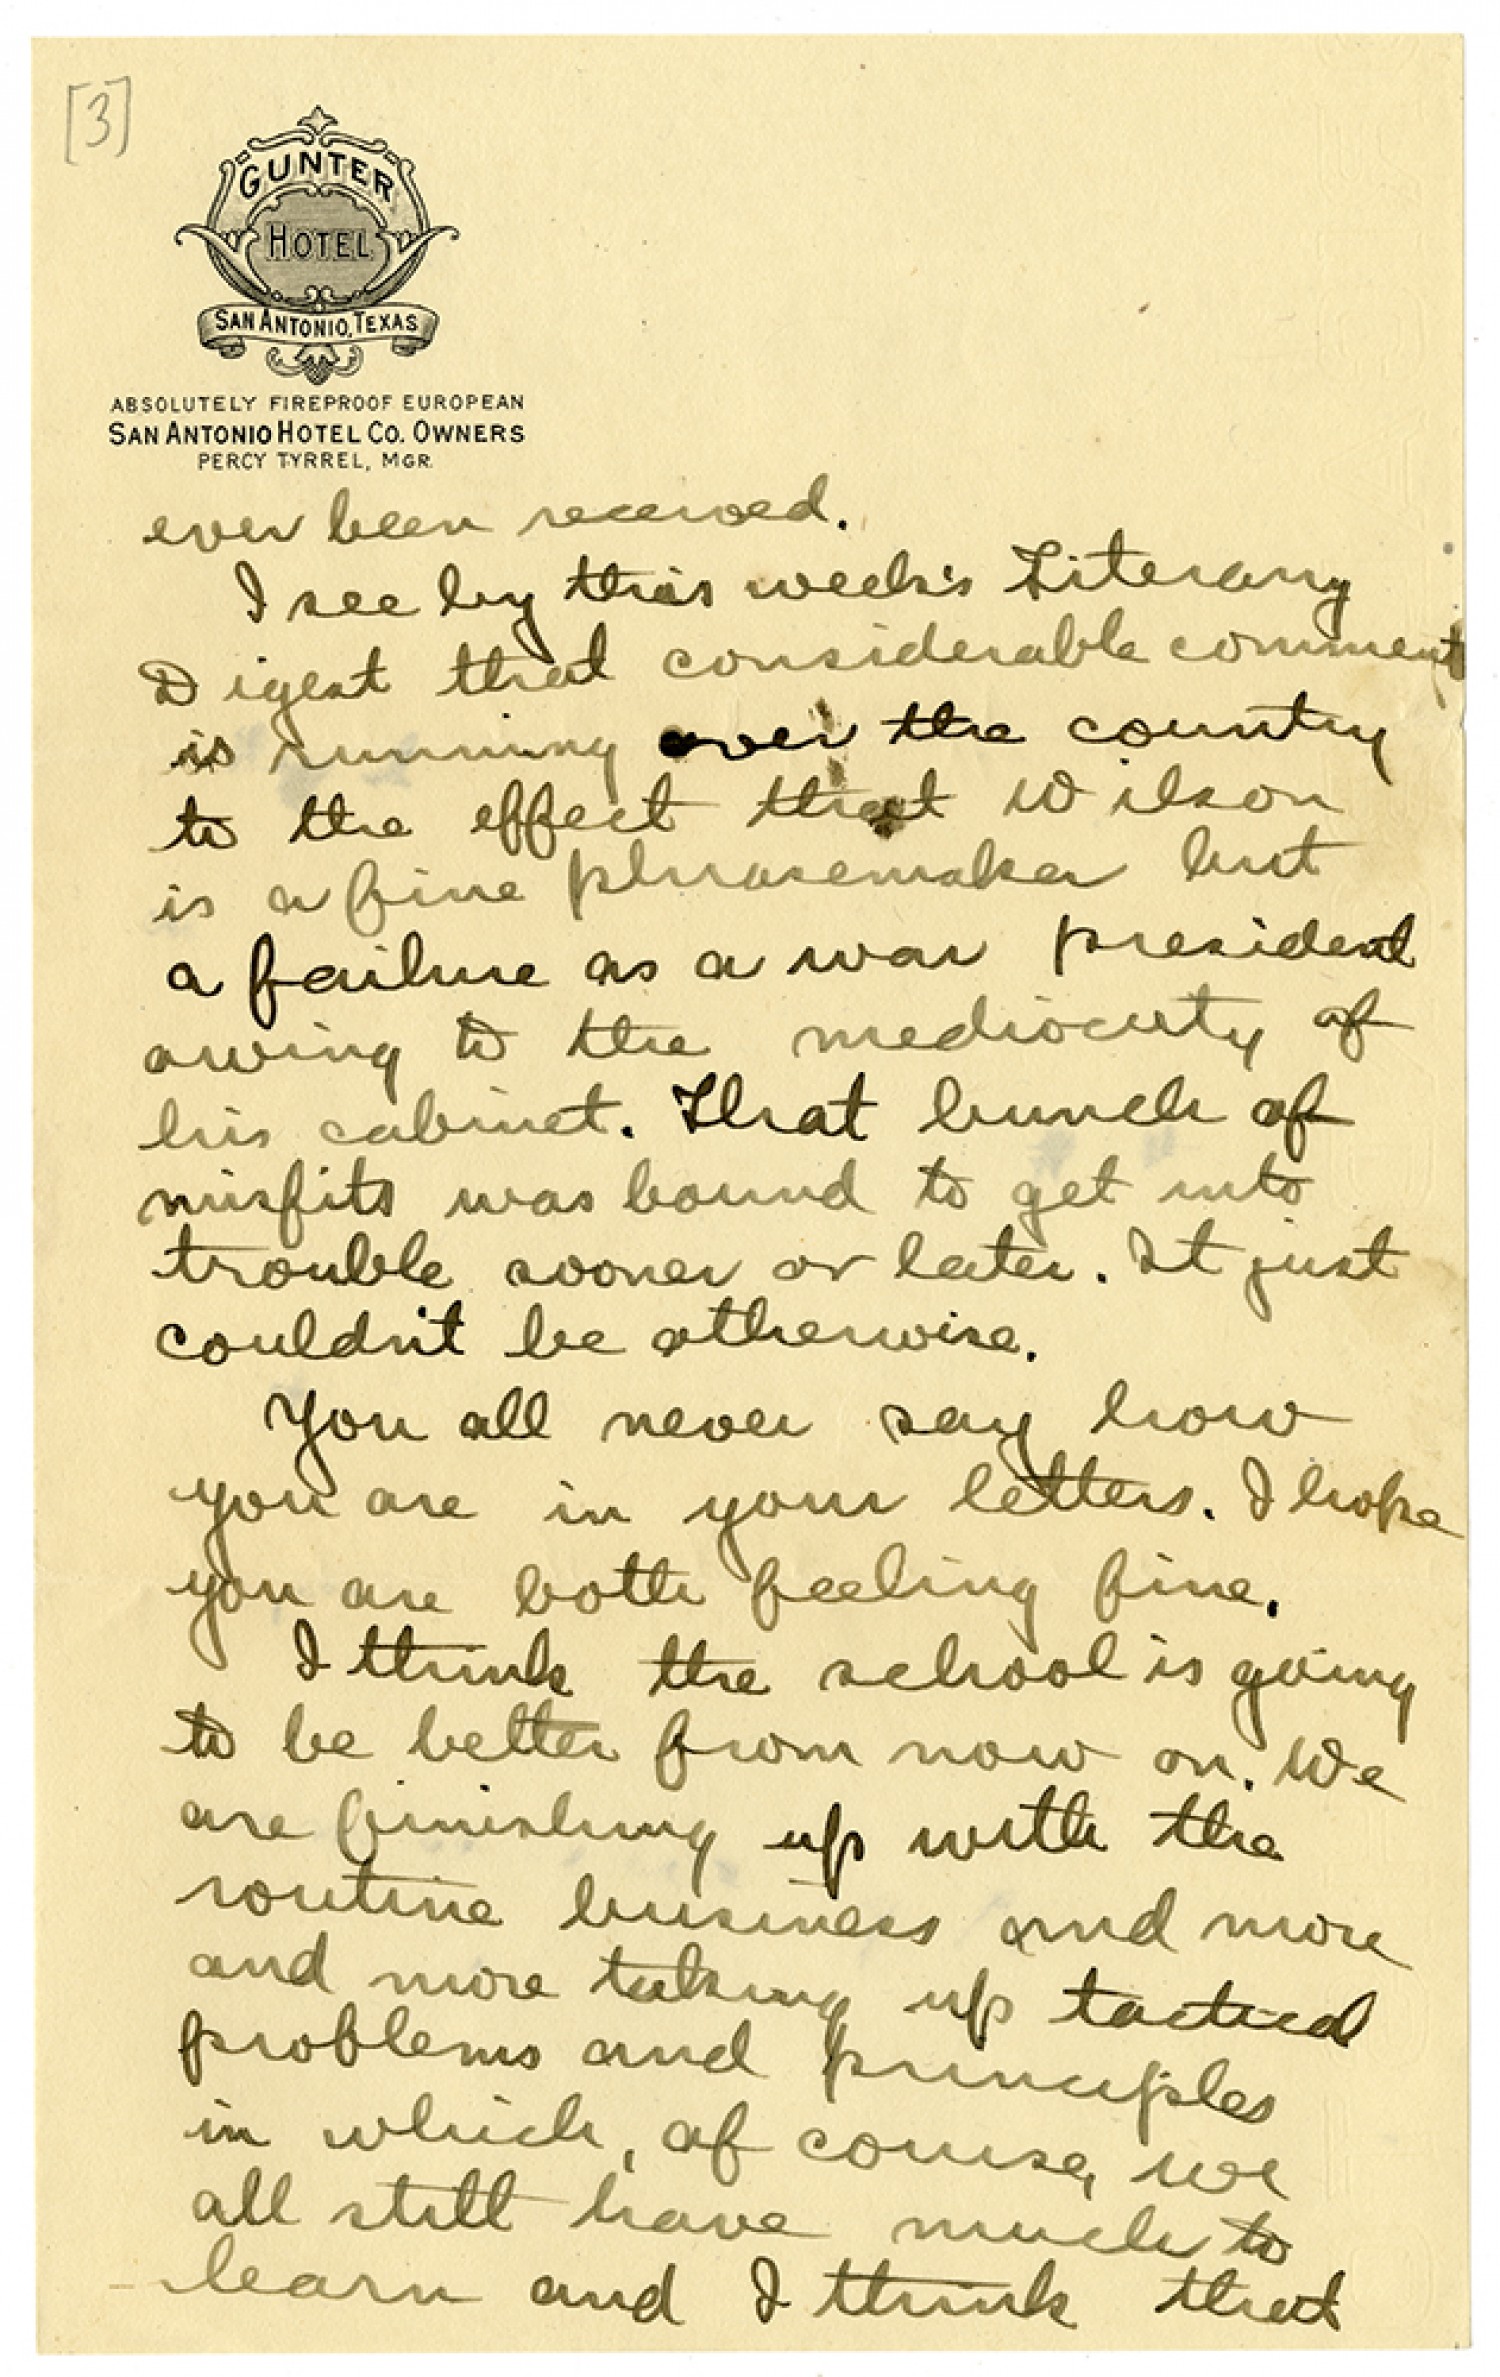 [3]
GUNTER
HOTEL
SAN ANTONIO, TEXAS
ABSOLUTELY FIREPROOF EUROPEAN
SAN ANTONIO HOTEL CO. OWNERS
PERCY TYRREL, MGR.
ever been received.
I see by this week's Literary
Digest that considerable comment
is running over the country
to the effect that Wilson
is a fine phrasemaker but
a failure as a war president
owing to the mediocrity of
his cabinet. That bunch of
misfits was bound to get into
trouble sooner or later. It just
couldn't be otherwise.
You all never say how
you are in your letters. I hope
you are both feeling fine.
I think the school is going
to be better from now on. We
are finishing up with the
routine business and more
and more taking up tactical
problems and principles
in which, of course, we
all still have much to
learn and I think that